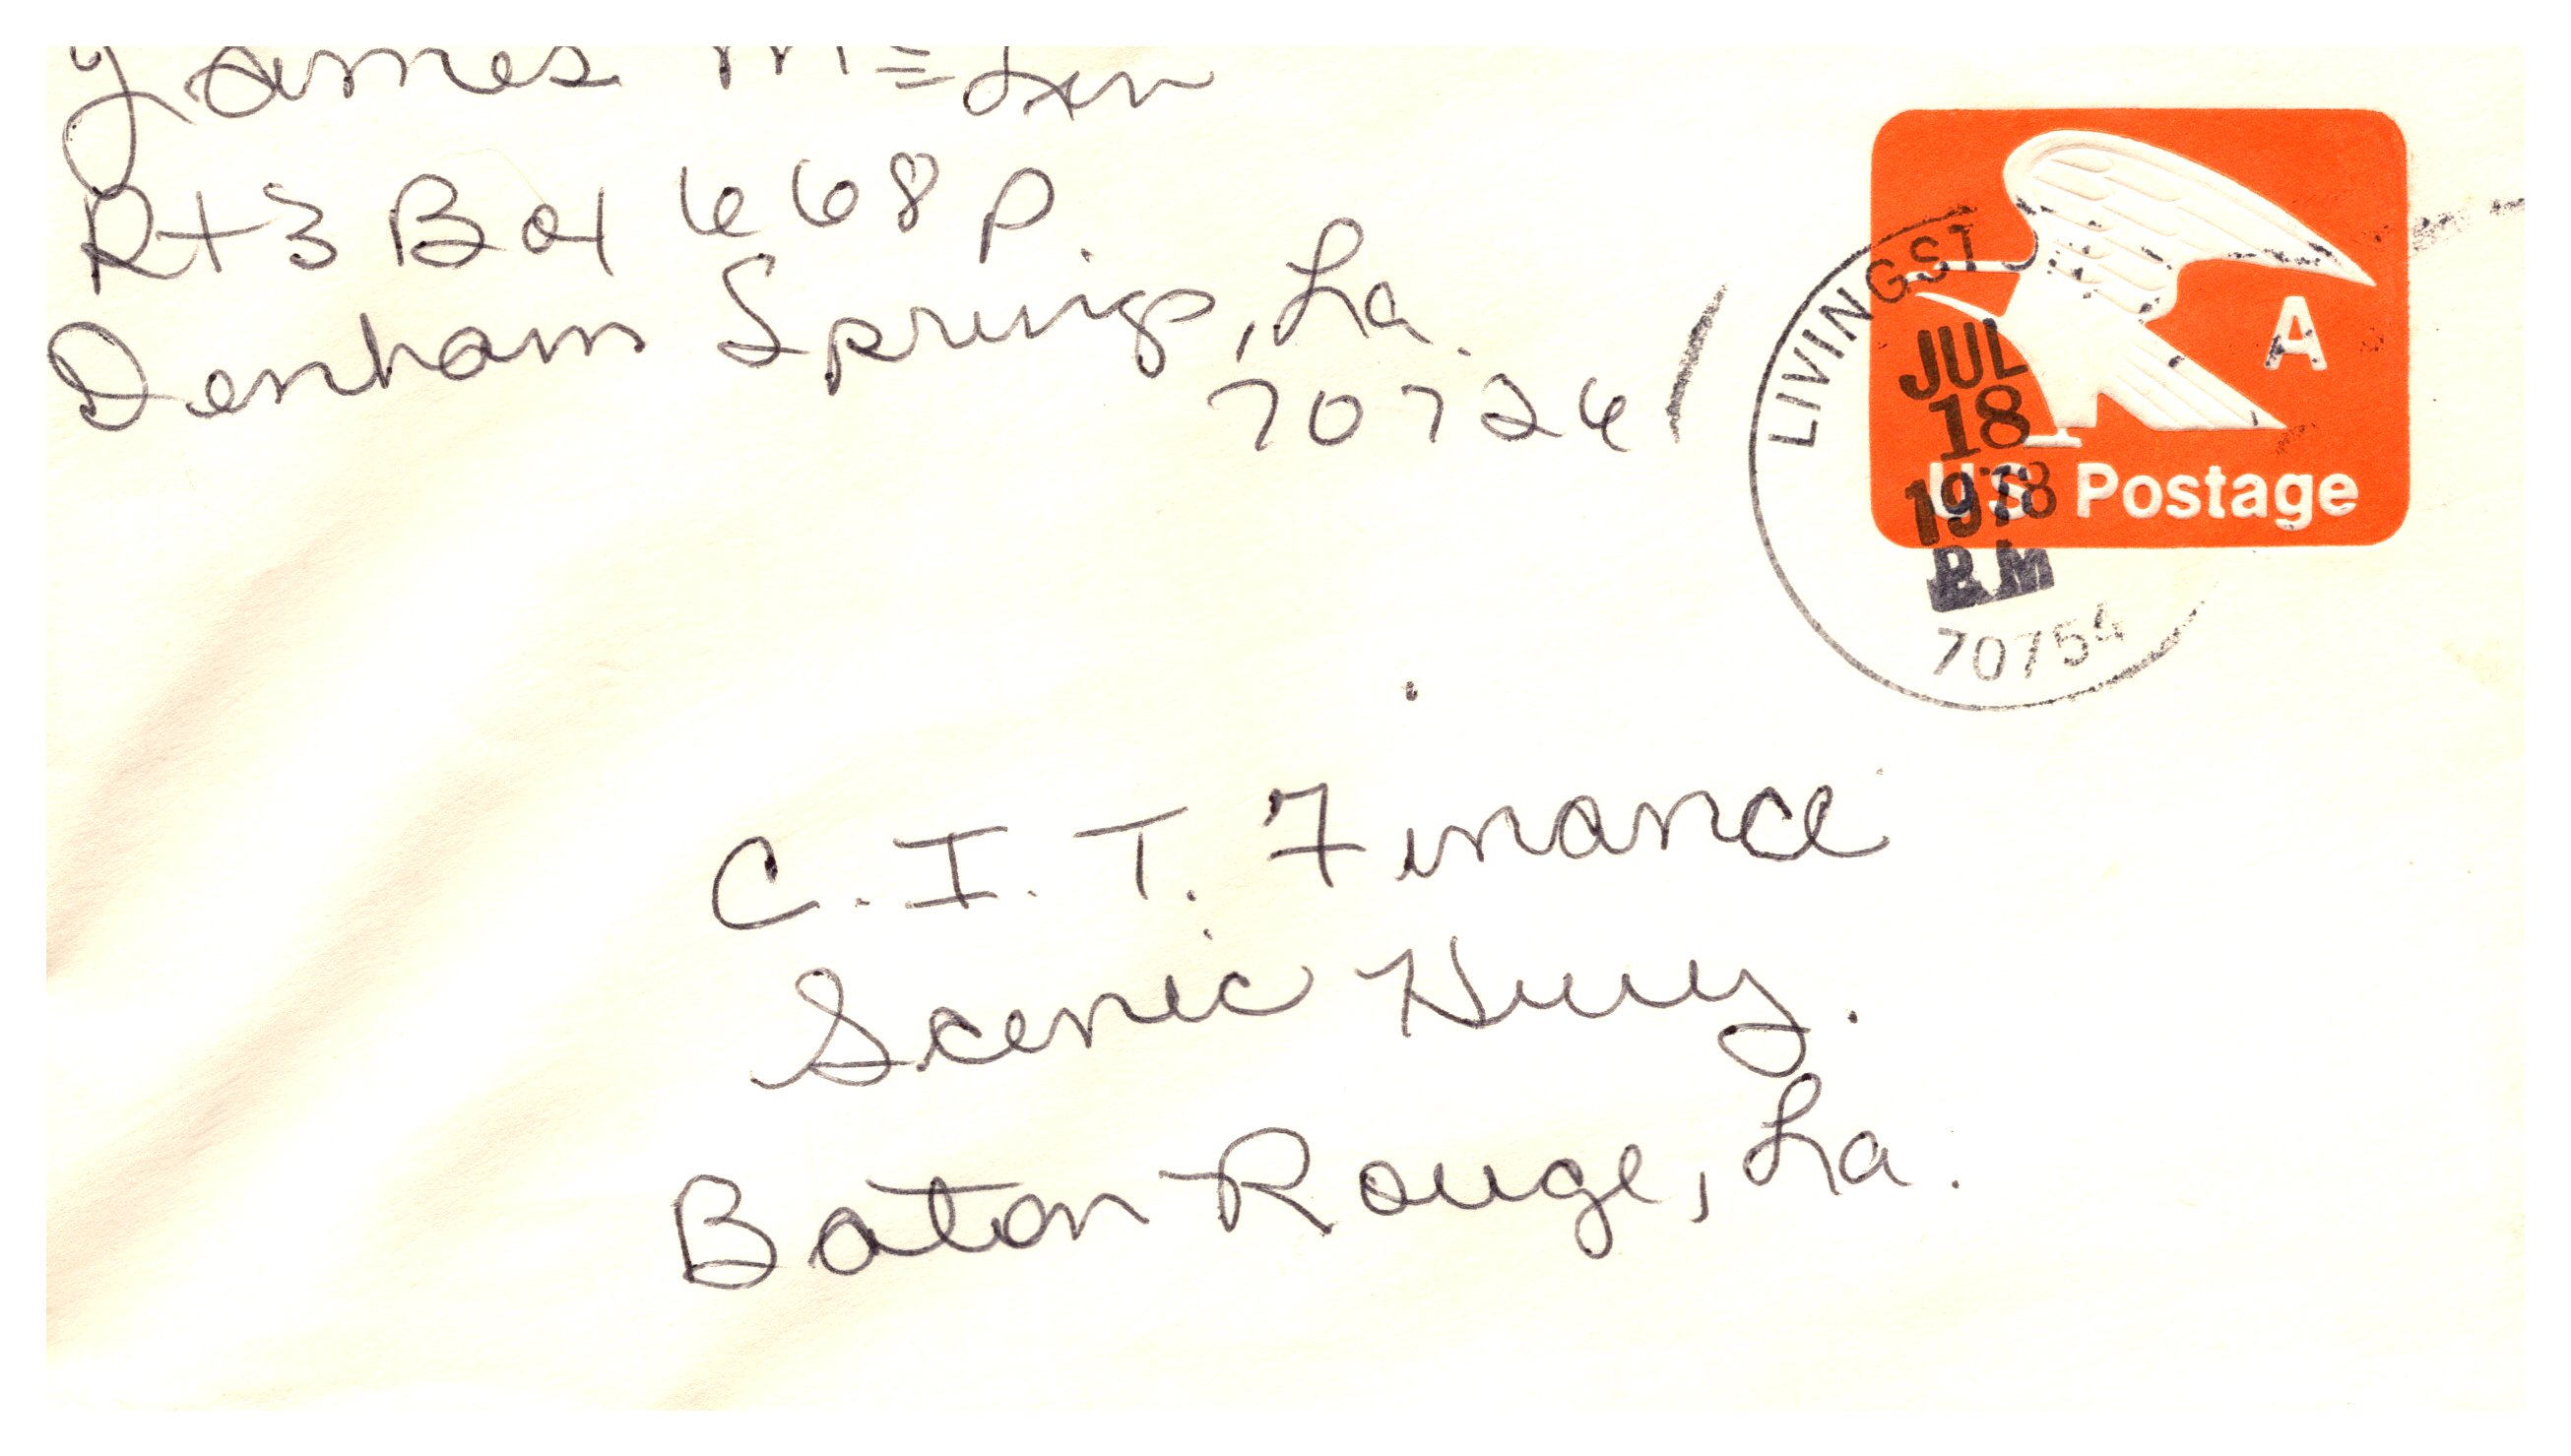 James
Rt 3 Box 668 P.
Denham Springs, La.
70726
LIVINGST
JUL
18
1978
PM
70754
A
US Postage
C. I. T. Finance
Scenic Hwy.
Baton Rouge, La.